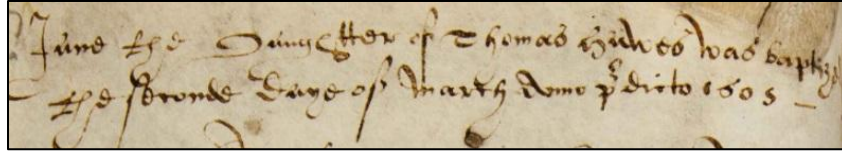 June the Daughter of Thomas Huwes was baptized
the seconde daye of march Anno pʳdicto 1605